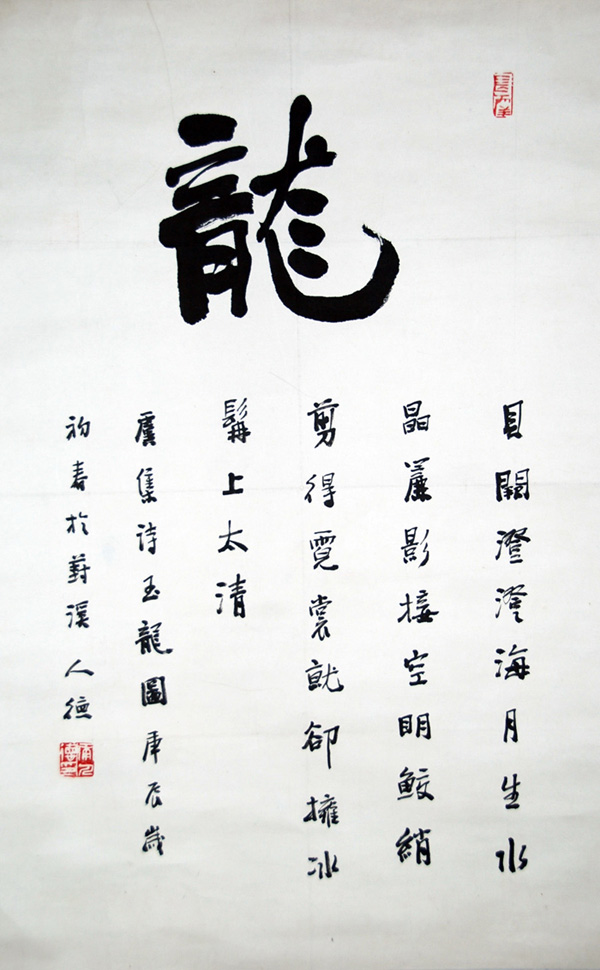 龍
貝闕澄澄海月生水
晶簾影接空明鮫綃
剪得霓裳就卻擁冰
鬟上太清
虞集诗玉龍圖庚辰歲
初春於蔚溪人德